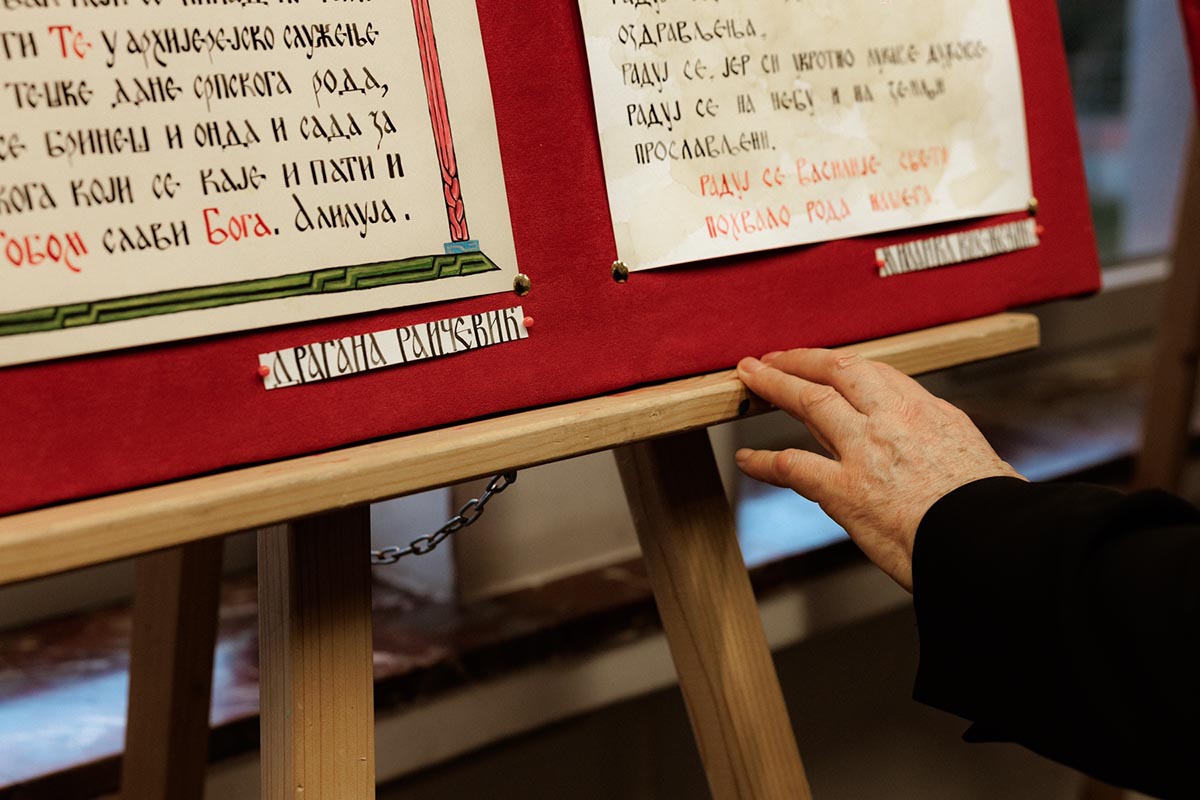 ги Те у архијерејско служење
тешке дане српскога рода,
се бринеш и онда и сада за
кога који се каје и пати и
Тобом слави Бога. Алилуја.
ДРАГАНА РАИЧЕВИЋ
оздрављења.
Радуј се, јер си укротио духове
Радуј се на небу и на земљи
прослављени.
Радуј се Василије свети
похвало рода нашега.